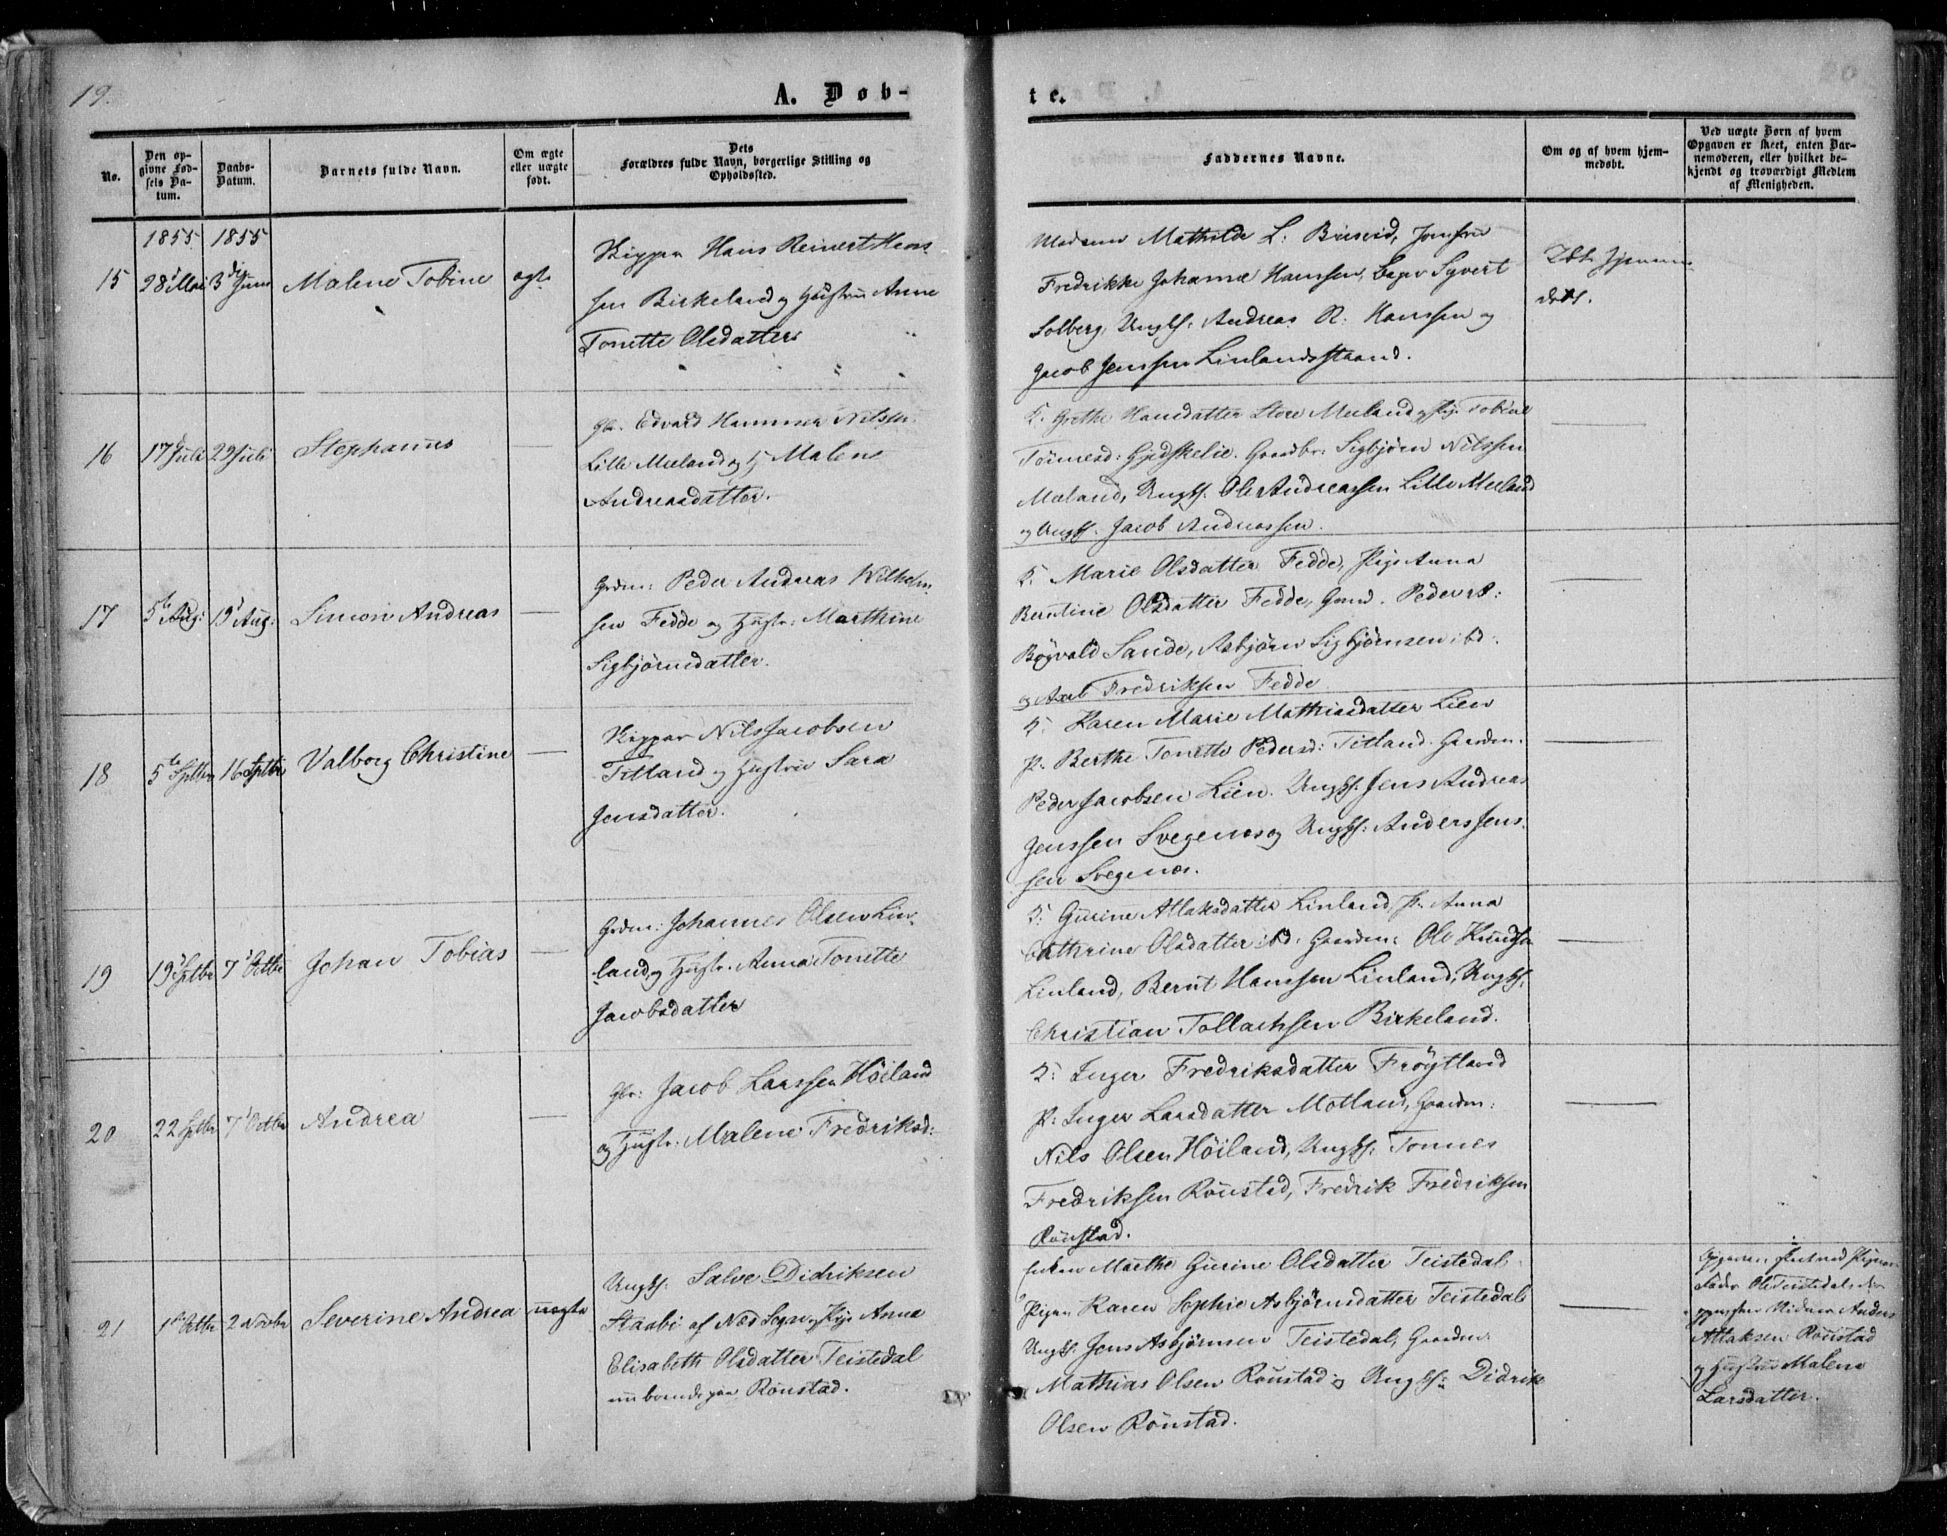 19.
A. Døb-
te.
No.
Den op-
givne Fød-
sels Da-
tum.
Daabs-
Datum.
Barnets fulde Navn.
Om ægte
eller uægte
født.
Dets
Forældres fulde Navn, borgerlige Stilling og
Opholdssted.
Faddernes Navne.
Om og af hvem hjem-
medøbt.
Ved uægte Børn af hvem
Opgaven er skeet, enten Bar-
nemoderen, eller hvilket be-
kjendt og troværdigt Medlem
af Menigheden.
1855 1855
15 28 Mai 3 Juni Malene Tobine ægte
Skipper Hans Reinert Hans-
sen Birkeland og Hustru Anne
Tonette Olsdatter
Madame Mathilde L. Jomfru
Fredrikke Johanne Hanssen, Syvert
Solberg, Ungk: Andreas R. Hanssen og
Jacob Jenssen Linlandsstrand.
16 17 Juli 29 Juli Stephanus
Gbr. Edvard Hammer Nilssen
Lille Mæland og Malene
Andreasdatter.
K. Grethe Hansdatter Store Mæland Tobine
Tönnesd: Gjedskelie. Gaardbr: Sigbjörn Nilssen
Mæland, Ungk. Ole Andreassen Lille Mæland
og Ungk. Jacob Andreassen.
17 5te Aug: 19 Aug: Simon Andreas
Grdm: Peder Andreas Wilhelm-
sen Fedde og Hustr: Marthine
Sigbjörnsdatter.
K. Marie Olsdatter Fedde, Pige Anna
Berntine Olsdatter Fedde, Gmd. Peder
Bögvald Sande, Asbjörn Sigbjörnsen ibd:
og Axel Fredriksen Fedde
18 5te Septbr 16 Septbr Valborg Christine
Skipper Nils Jacobsen
Titland og Hustru Sara
Jensdatter.
K. Karen Marie Mathiasdatter Lien
P. Berthe Tonette Pedersd: Titland. Gaardm.
Peder Jacobsen Lien. Ungk. Jens Andreas
Jenssen Svegenæs og Ungk: Anders Jens-
sen Svegenæs.
19 19 Septbr 7 Octbr Johan Tobias
Grdm: Johannes Olsen Lin-
land og Hustr. Anna Tonette
Jacobsdatter
K. Gurine Atlaksdatter Linland, P. Anna
Cathrine Olsdatter ibd. Gaardm: Ole Knudsen
Linland, Bernt Hanssen Linland, Ungk.
Christian Tollachsen Birkeland.
20 22 Septbr 7 Octbr Andrea
Gbr: Jacob Larssen Höiland
og Hustr: Malene Fredriksd:
K. Inger Fredriksdatter Fröytland
P. Inger Larsdatter Motland, Gaardm:
Nils Olsen Höiland, Ungk. Tönnes
Fredriksen Rönstad, Fredrik Fredriksen
Rönstad.
21 1 Octbr 2 Novbr Severine Andrea uægte
Ungk. Salve Didriksen
Stasbi af Næs Sogn og Pige Anna
Elisabeth Olsdatter Teistedal
nu boende paa Rönstad.
Enken Marthe Gurine Olsdatter Teistedal
Pigen Karen Sophie Asbjörnsdatter Teistedal
Ungk. Jens Asbjörnsen Teistedal, Gaardm.
Mathias Olsen Rönstad og Ungk: Didrik
Olsen Rönstad.
Ole Teistedal
Anders
Atlaksen Rönstad
og Hustru Malene
Larsdatter.